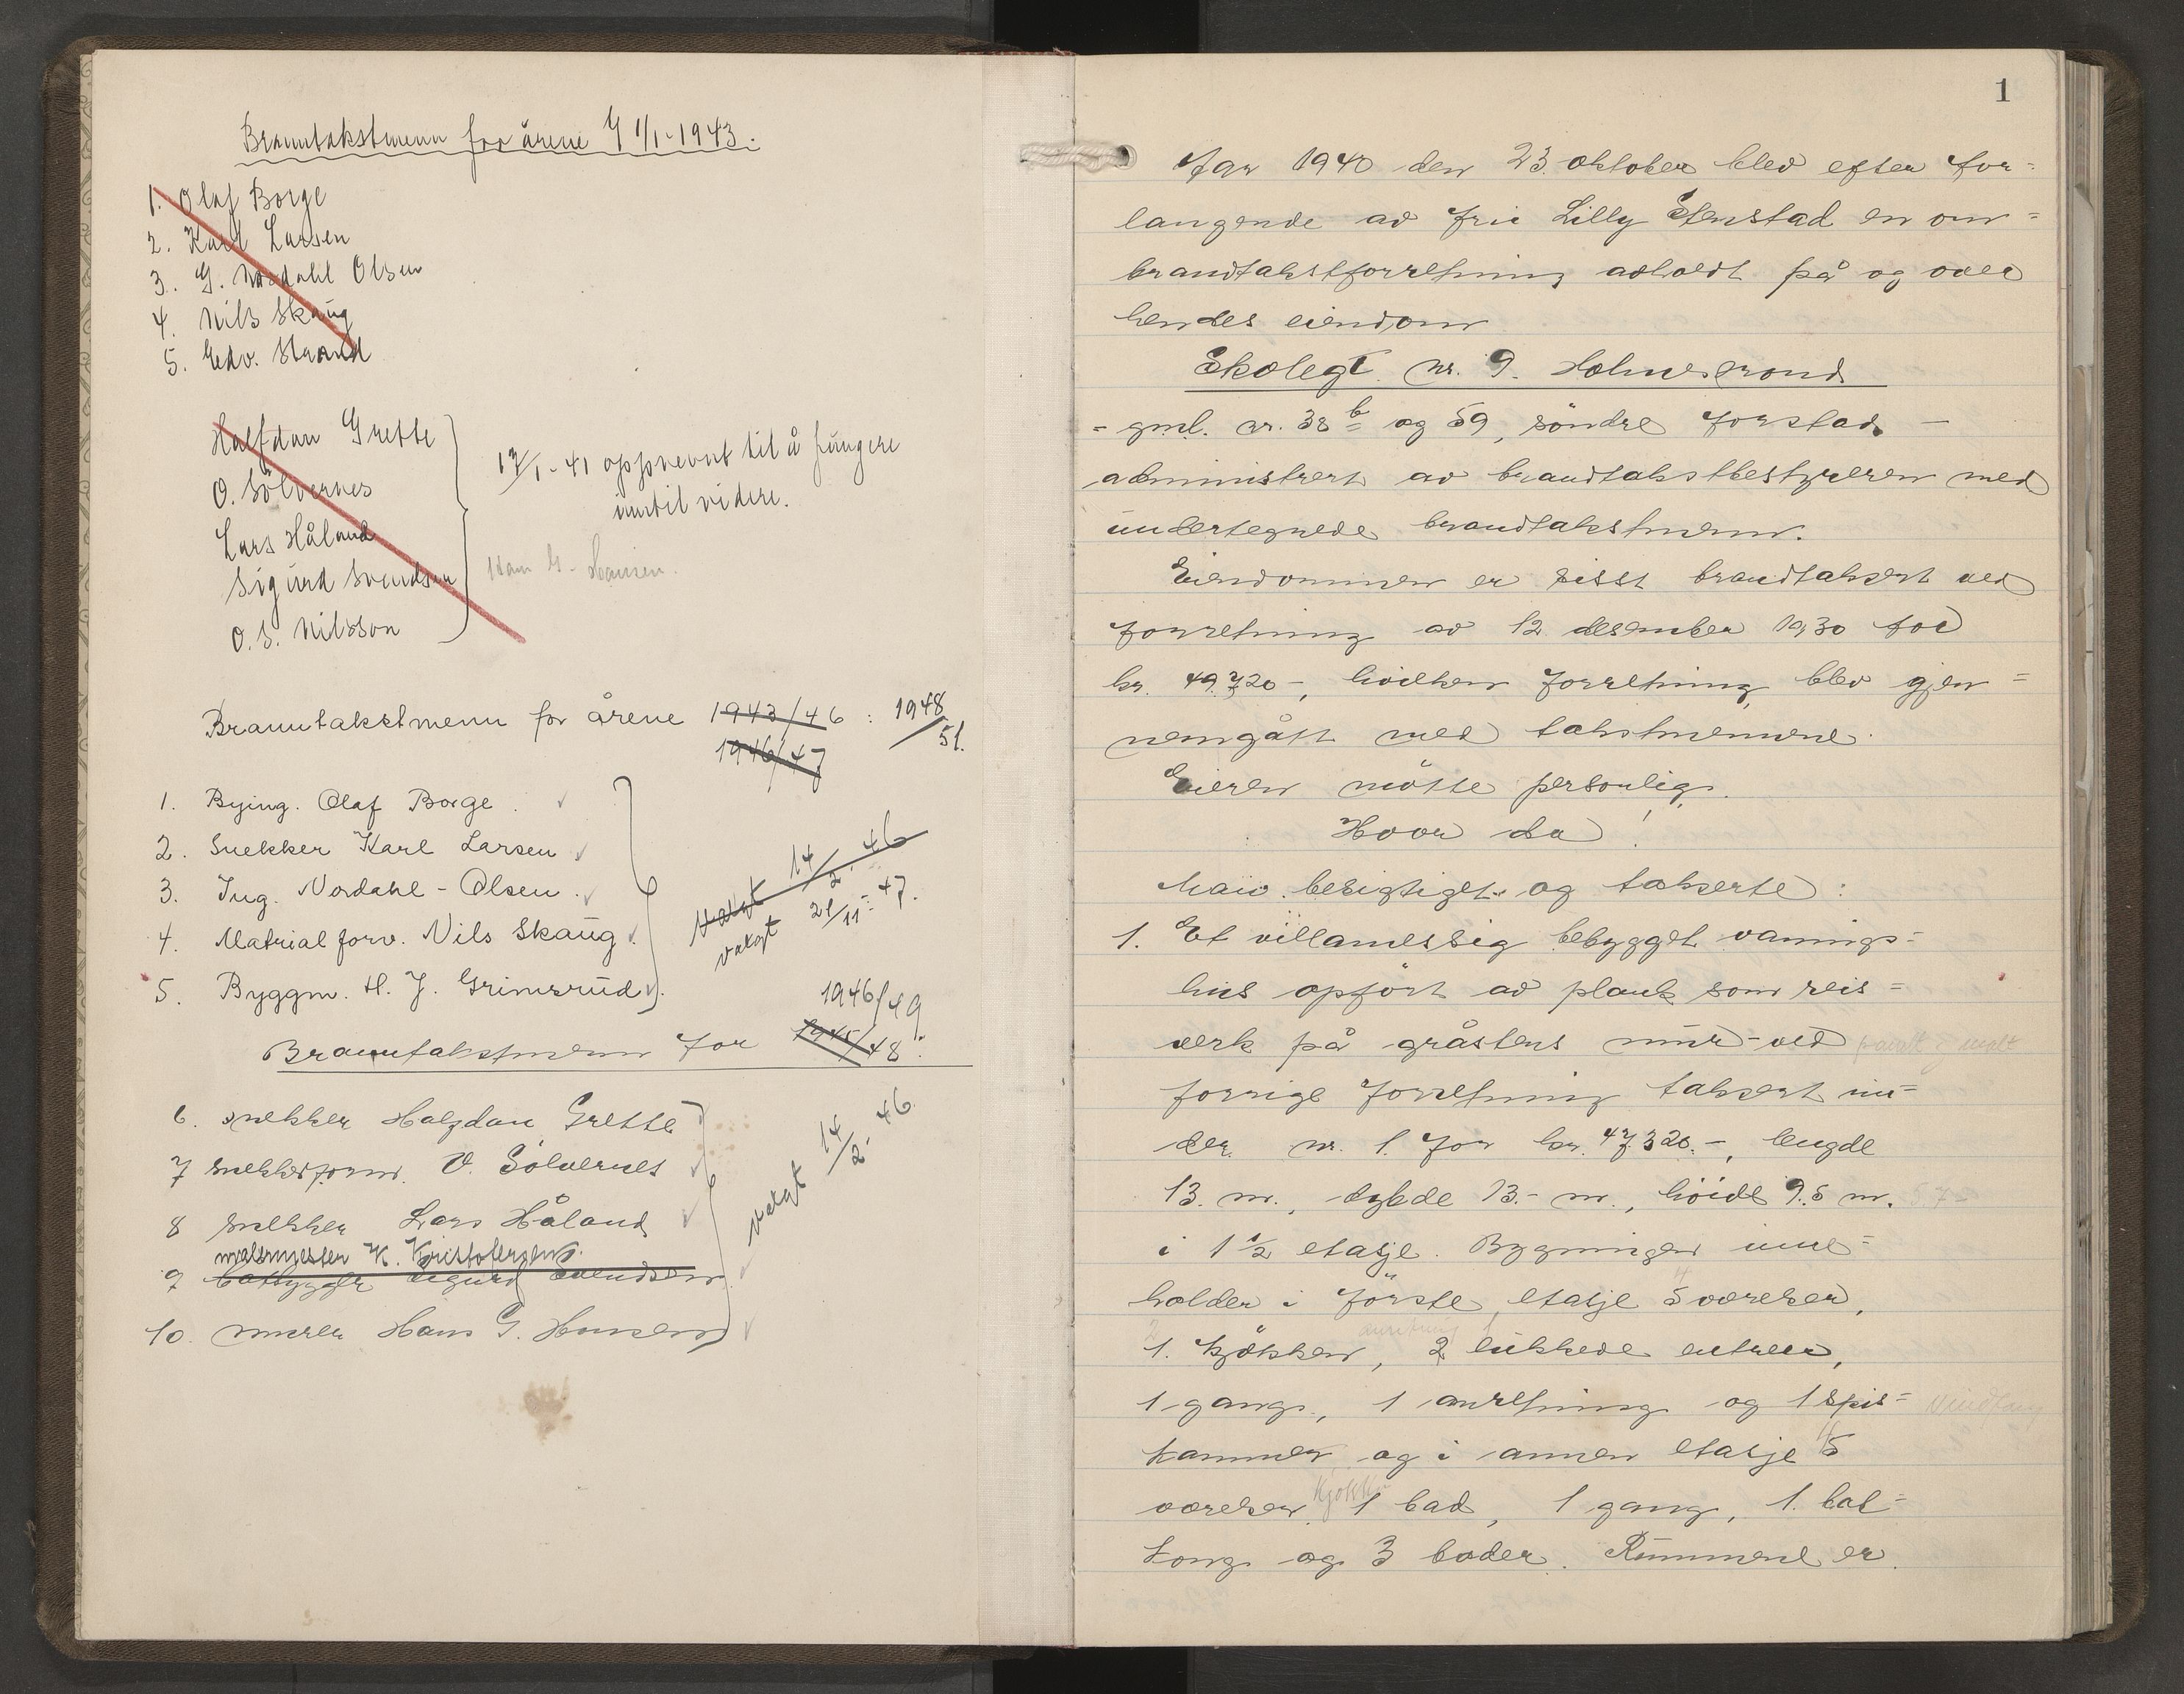 Branntakstmenn for årene 1/1-1943.
1. Olaf Borge
2. Karl Larsen
3. G. Nordahl Olsen
4. Nils Skaug
5. Edv. Strand
Halfdan Grette
O. Sölvernes
Lars Håland
Sigurd Svendsen
O. S. Nilsson
17/1-41 oppnevnt til å fungere
inntil videre.
Hans G. Hansen.
Branntakstmenn for årene 1943/46 : 1948/51.
1946/47
1. Bying. Olaf Borge.
2. Snekker Karl Larsen
3. Ing. Nordahl-Olsen.
4. Matrialforv. Nils Skaug.
5. Byggm. H. J. Grimsrud.
Valgt 14/2-46
valgt 21/11-47.
1946/49
Branntakstmenn for 1945/48.
6. snekker Halfdan Grette
7 snekkerform. O. Sölvernes
8 snekker Lars Håland
malermester K. Kristofersen.
9 båtbygger Sigurd Svendsen
10. murer Hans G. Hansen
valgt 14/2-46.
1
Aar 1940 den 23. oktober blev efter for=
langende av fru Lilly Stenstad en om=
brandtakstforretning avholdt på og over
hendes eiendom
Skolegt. nr. 9. Holmestrand
- gml. nr. 38 b og 59, söndre forstad -
administrert av brandtakstbestyreren med
undertegnede brandtakstmenn.
Eiendommen er sisst brandtaksert ved
forretning av 12 desember 1930 for
kr. 49.720-, hvilken forretning blev gjen=
nemgått med takstmennene.
Eieren mötte personlig.
Hvor da!
Man besigtiget og takserte:
1. Et villamessig bebygget vånings=
hus opfört av plank som reis=
verk på gråstens mur - ved
forrige forretning taksert un=
der nr. 1 for kr. 47.320.-, lengde
13. m., dybde 13.- m., höide 9.5 m.
i 1 1/2 etasje. Bygningen inne=
holder i förste etasje 5 værelser,
4
2 anretning 1
1. kjökken, 2 lukkede entreer,
1 gang, 1 anretning og 1 spis=
kammer og i annen etasje 5
4
værelser, 1 bad, 1 gang, 1. bal=
Kjökken
kong og 3 boder. Rummene er